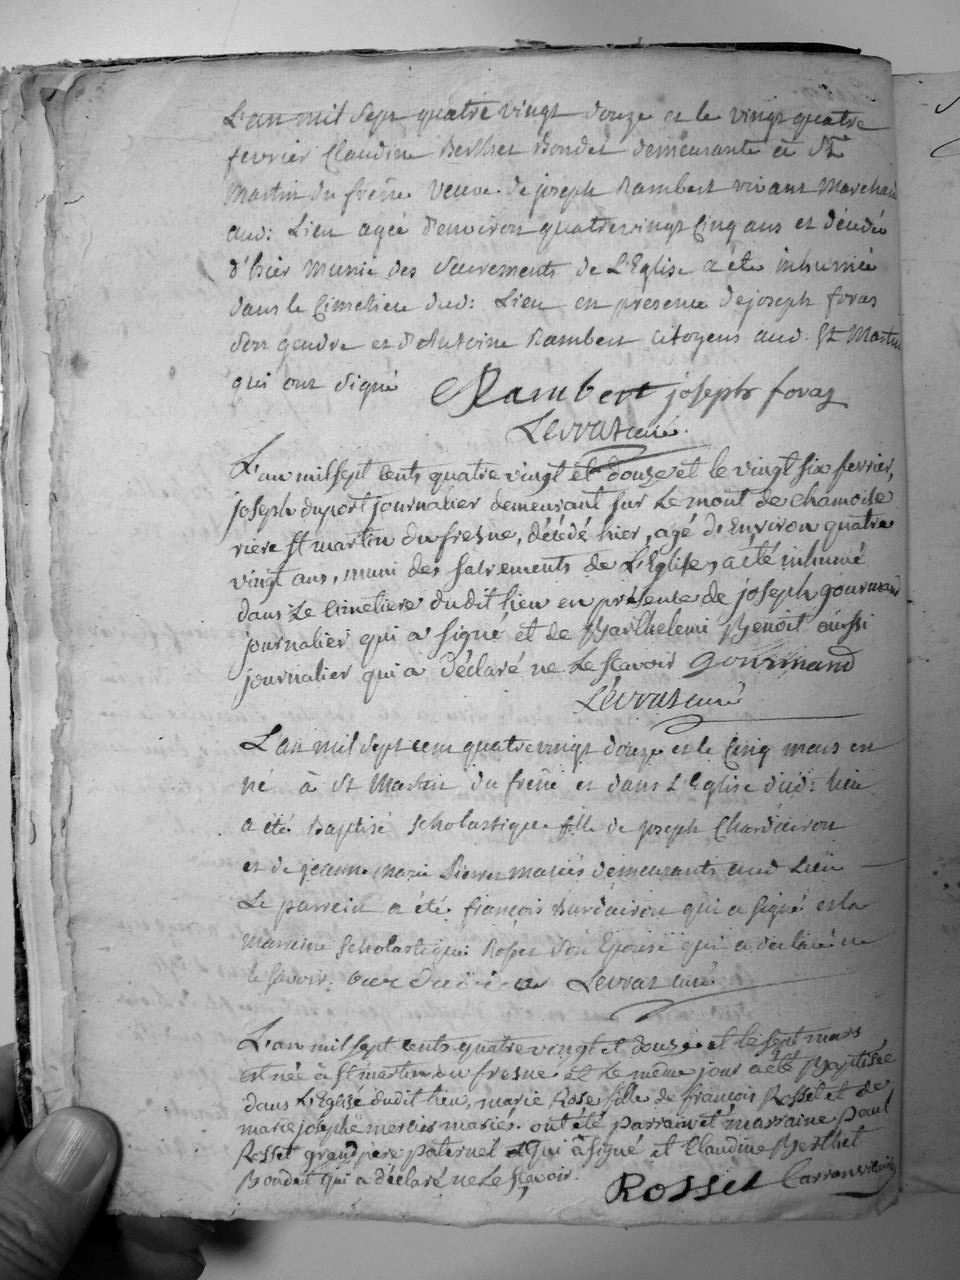 L'an mil sept quatre vingt douze et le vingt quatre
fevrier Claudine Berthet Bondet demeurante à St
Martin du frêne veuve de joseph Rambert vivant Marchand
aud: Lieu agée d'environ quatre vingt cinq ans et décédée
d'hier munie des sacrements de L'Eglise a été inhumée
dans le Cimetiere dud: Lieu en presence de joseph foras
son gendre et d'Antoine Rambert citoyens aud. St Martin
qui ont signé Rambert joseph foraz
Levrat curé.
L'an mil sept cents quatre vingt et douze et le vingt six fevrier,
joseph duport journalier demeurant sur Le mont de chamoise
riere St martin du fresne, décédé hier, agé d'Environ quatre
vingt ans, muni des sacrements de L'Eglise, a été inhumé
dans Le cimetiere dudit lieu en présence de joseph gourmand
journalier qui a signé et de Barthelemi Benoit aussi
journalier qui a déclaré ne Le scavoir gourmand
Lévrat curé
L'an mil sept cent quatre vingt douze et le cinq mars est
né à St Martin du frêne et dans L'Eglise dud: lieu
a été Baptisé scholastique fille de joseph
et de jeanne marie mariés demeurants aud Lieu
Le parrein a été françois qui a signé et la
marreine scholastique son Epouse qui a declaré ne
le savoir. Levrat curé
L'an mil sept cents quatre vingt et douze et le sept mars
est née à St martin du fresne et Le même jour a été Baptisée
dans L'Eglise dudit lieu, marie Rose fille de françois Rosset et de
marie josephe mercier mariés. ont été parrain et marraine paul
Rosset grand pere paternel qui a signé et Claudine Berthet
Bondet qui a déclaré ne Le scavoir. Rosset